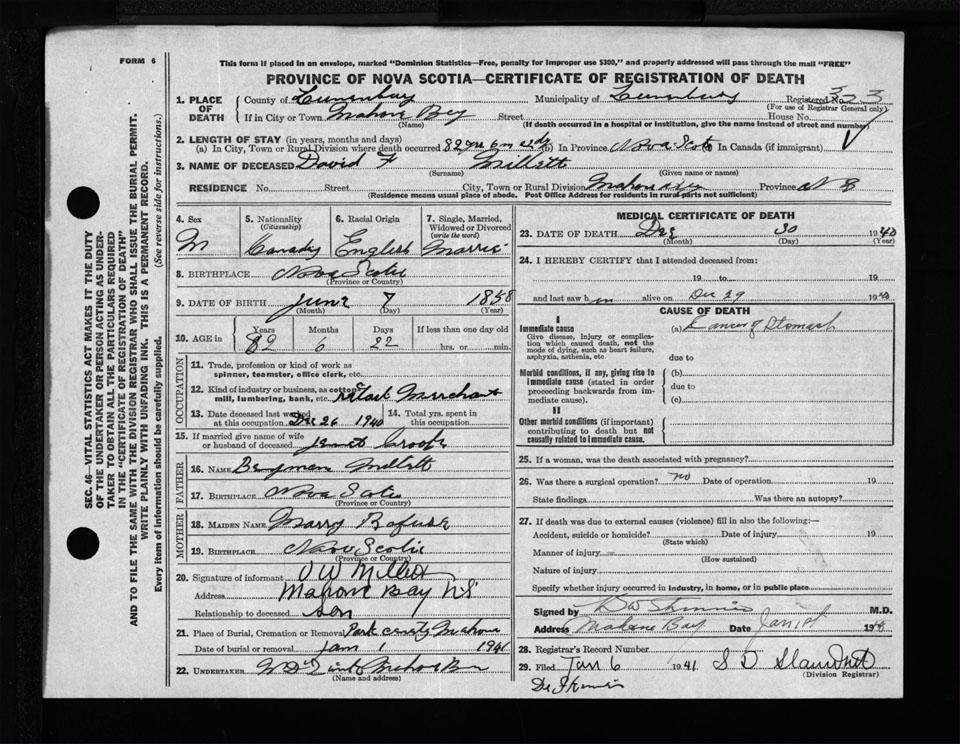 FORM 6
This form if placed in an envelope, marked "Dominion Statistics—Free, penalty for improper use $300," and properly addressed will pass through the mail "FREE"
PROVINCE OF NOVA SCOTIA—CERTIFICATE OF REGISTRATION OF DEATH
1. PLACE OF DEATH County of Lunenburg Municipality of Lunenburg Registered No. 323
(For use of Registrar General only)
If in City or Town Mahone Bay Street House No.
(Name) (If death occurred in a hospital or institution, give the name instead of street and number)
2. LENGTH OF STAY (in years, months and days)
(a) In City, Town or Rural Division where death occurred 82 yrs 6 m (b) In Province Nova Scotia In Canada (if immigrant)
3. NAME OF DECEASED David F Millett
(Surname) (Given name or names)
RESIDENCE No. Street City, Town or Rural Division Mahone Bay Province N S
(Residence means usual place of abode. Post Office Address for residents in rural parts not sufficient)
SEC. 46—VITAL STATISTICS ACT MAKES IT THE DUTY
OF THE UNDERTAKER OR PERSON ACTING AS UNDER-
TAKER TO OBTAIN ALL THE PARTICULARS REQUIRED
IN THE "CERTIFICATE OF REGISTRATION OF DEATH"
AND TO FILE THE SAME WITH THE DIVISION REGISTRAR WHO SHALL ISSUE THE BURIAL PERMIT.
WRITE PLAINLY WITH UNFADING INK. THIS IS A PERMANENT RECORD.
Every item of Information should be carefully supplied. (See reverse side for instructions.)
4. Sex 5. Nationality (Citizenship) 6. Racial Origin 7. Single, Married, Widowed or Divorced (write the word)
M English
8. BIRTHPLACE Nova Scotia
(Province or Country)
9. DATE OF BIRTH June 7 1858
(Month) (Day) (Year)
10. AGE in Years Months Days If less than one day old
82 6 22 hrs. or min.
OCCUPATION
11. Trade, profession or kind of work as spinner, teamster, office clerk, etc.
12. Kind of industry or business, as cotton mill, lumbering, bank, etc. Retail Merchant
13. Date deceased last worked at this occupation Dec 26 1940 14. Total yrs. spent in this occupation
15. If married give name of wife or husband of deceased
FATHER
16. NAME Millett
17. BIRTHPLACE Nova Scotia
(Province or Country)
MOTHER
18. MAIDEN NAME Marry Rafuse
19. BIRTHPLACE Nova Scotia
(Province or Country)
20. Signature of informant
Address Mahone Bay NS
Relationship to deceased son
21. Place of Burial, Cremation or Removal Park Mahone
Date of burial or removal Jan 1 1941
22. UNDERTAKER
(Name and address)
MEDICAL CERTIFICATE OF DEATH
23. DATE OF DEATH Dec 30 1940
(Month) (Day) (Year)
24. I HEREBY CERTIFY that I attended deceased from:
19 to 19
and last saw him alive on Dec 29 1940
CAUSE OF DEATH
I
Immediate cause (a) Cancer of Stomach
Give disease, injury or complica-
tion which caused death, not the
mode of dying, such as heart failure,
asphyxia, asthenia, etc. due to
Morbid conditions, if any, giving rise to (b)
immediate cause (stated in order due to
proceeding backwards from im-
mediate cause). (c)
II
Other morbid conditions (if important)
contributing to death but not
causally related to immediate cause.
25. If a woman, was the death associated with pregnancy?
26. Was there a surgical operation? no Date of operation 19
State findings Was there an autopsy?
27. If death was due to external causes (violence) fill in also the following:—
Accident, suicide or homicide? Date of injury 19
(State which)
Manner of injury —
(How sustained)
Nature of injury
Specify whether injury occurred in Industry, in home, or in public place
Signed by M.D.
Address Mahone Bay Date Jan 1st
28. Registrar's Record Number
29. Filed Jan 6 1941
(Division Registrar)